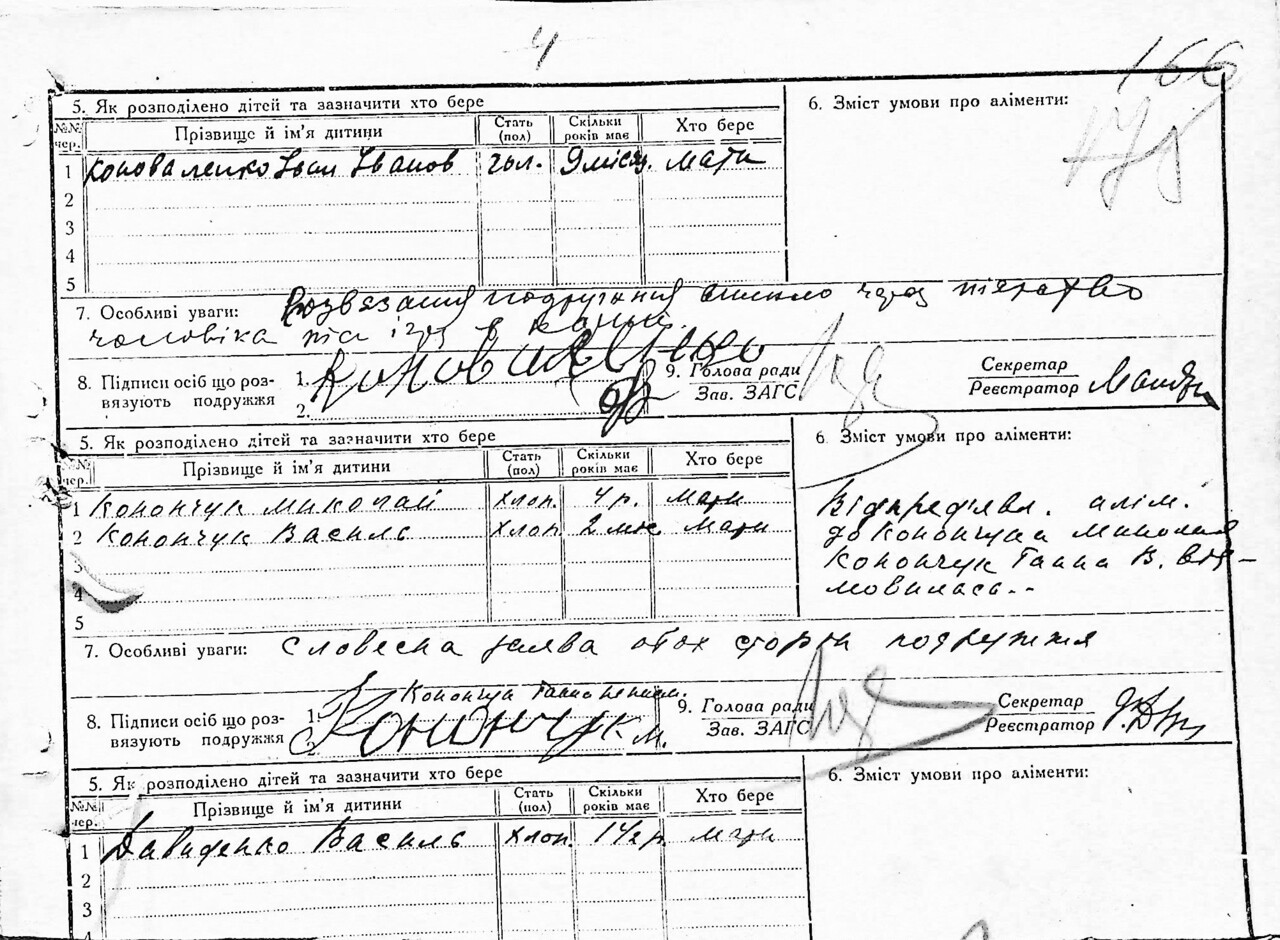 4
166
5. Як розподілено дітей та зазначити хто бере
6. Зміст умови про аліменти:
№№ чер. Прізвище й ім'я дитини Стать (пол) Скільки років має Хто бере
1 Коноваленко Іван Іванов чол. 9 місяц. мати
2
3
4
5
7. Особливі уваги: Розвязання подружжя
чоловіка
8. Підписи осіб що роз-
вязують подружжя
1. Коноваленко
2.
9. Голова ради
Зав. ЗАГС
Секретар
Реєстратор
5. Як розподілено дітей та зазначити хто бере
6. Зміст умови про аліменти:
чер. Прізвище й ім'я дитини Стать (пол) Скільки років має Хто бере
1 Конончук Миколай хлоп. 4 р. мати
2 Конончук Василь хлоп 2 міс мати
3
4
5
алім.
до Конончука Миколая
Конончук Ганна В. від-
мовилась..
7. Особливі уваги: Словесна заява обох сторін подружжя
8. Підписи осіб що роз-
вязують подружжя
1. Конончук Ганна
2. Конончук М.
9. Голова ради
Зав. ЗАГС
Секретар
Реєстратор
5. Як розподілено дітей та зазначити хто бере
6. Зміст умови про аліменти:
№№ чер. Прізвище й ім'я дитини Стать (пол) Скільки років має Хто бере
1 Давиденко Василь хлоп. 1 1/2 р. мати
2
3
4